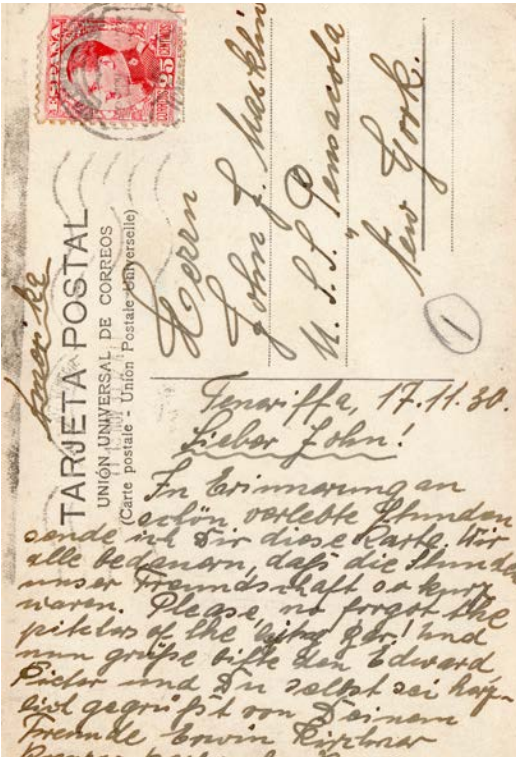 ESPAÑA
CORREOS 25 CENTIMOS
Amerika
TARJETA POSTAL
UNIÓN UNIVERSAL DE CORREOS
(Carte postale - Unión Postale Universelle)
Herrn
John J.
U. S. S. "Pensacola"
New York.
1
Teneriffa, 17.11.30.
Lieber John!
In Erinnerung an
schön verlebte Stunden
sende ich Dir diese Karte. Wir
alle bedauern, daß die Stunden
unser Freundschaft so kurz
waren. Please, no forgot the
of the Und
nun grüße bitte den Edward
Pieter und Du selbst sei herz-
lich gegrüßt von Deinem
Freunde Erwin